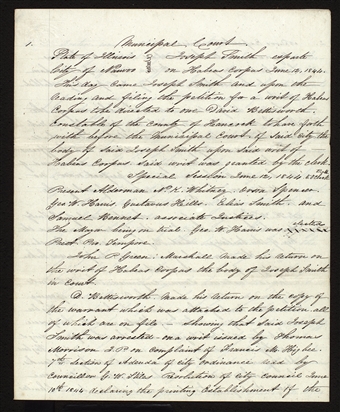 1. Municipal Court
State of Illinois Joseph Smith exparte
City of Nauvoo on Habeas Corpus June 12, 1844.
This day came Joseph Smith and upon the
reading and filing the petition for a writ of Habeas
Corpus to be directed to one David Bettisworth
Constable of the County of Hancock to have forth
with before the Municipal Court of Said City the
body of Said Joseph Smith upon Said writ of
Habeas Corpus Said writ was granted by the clerk.
Special Session June 12, 1844 o'clock
Present Alderman N. K. Whitney. Orson Spencer.
Geo W Harris Gustavus Hills. Elias Smith. and
Samuel Bennet. associate Justices.
The Mayor being on trial Geo W Harris was elected
Prest. Pro. Tempore.
John P Green. Marshall made his return on
the writ of Habeas Corpus the body of Joseph Smith
in Court.
D. Bettisworth made his return on the copy of
the warrant which was attached to the petition all
of which are on file — showing that Said Joseph
Smith was arrested on a writ issued by Thomas
Morrison J. P on complaint of Francis M. Higbee.
7th Section of Addenda of City ordinance read by
Councillor G. W. Resolution of City Council June
10th 1844 declaring the printing establishment of the